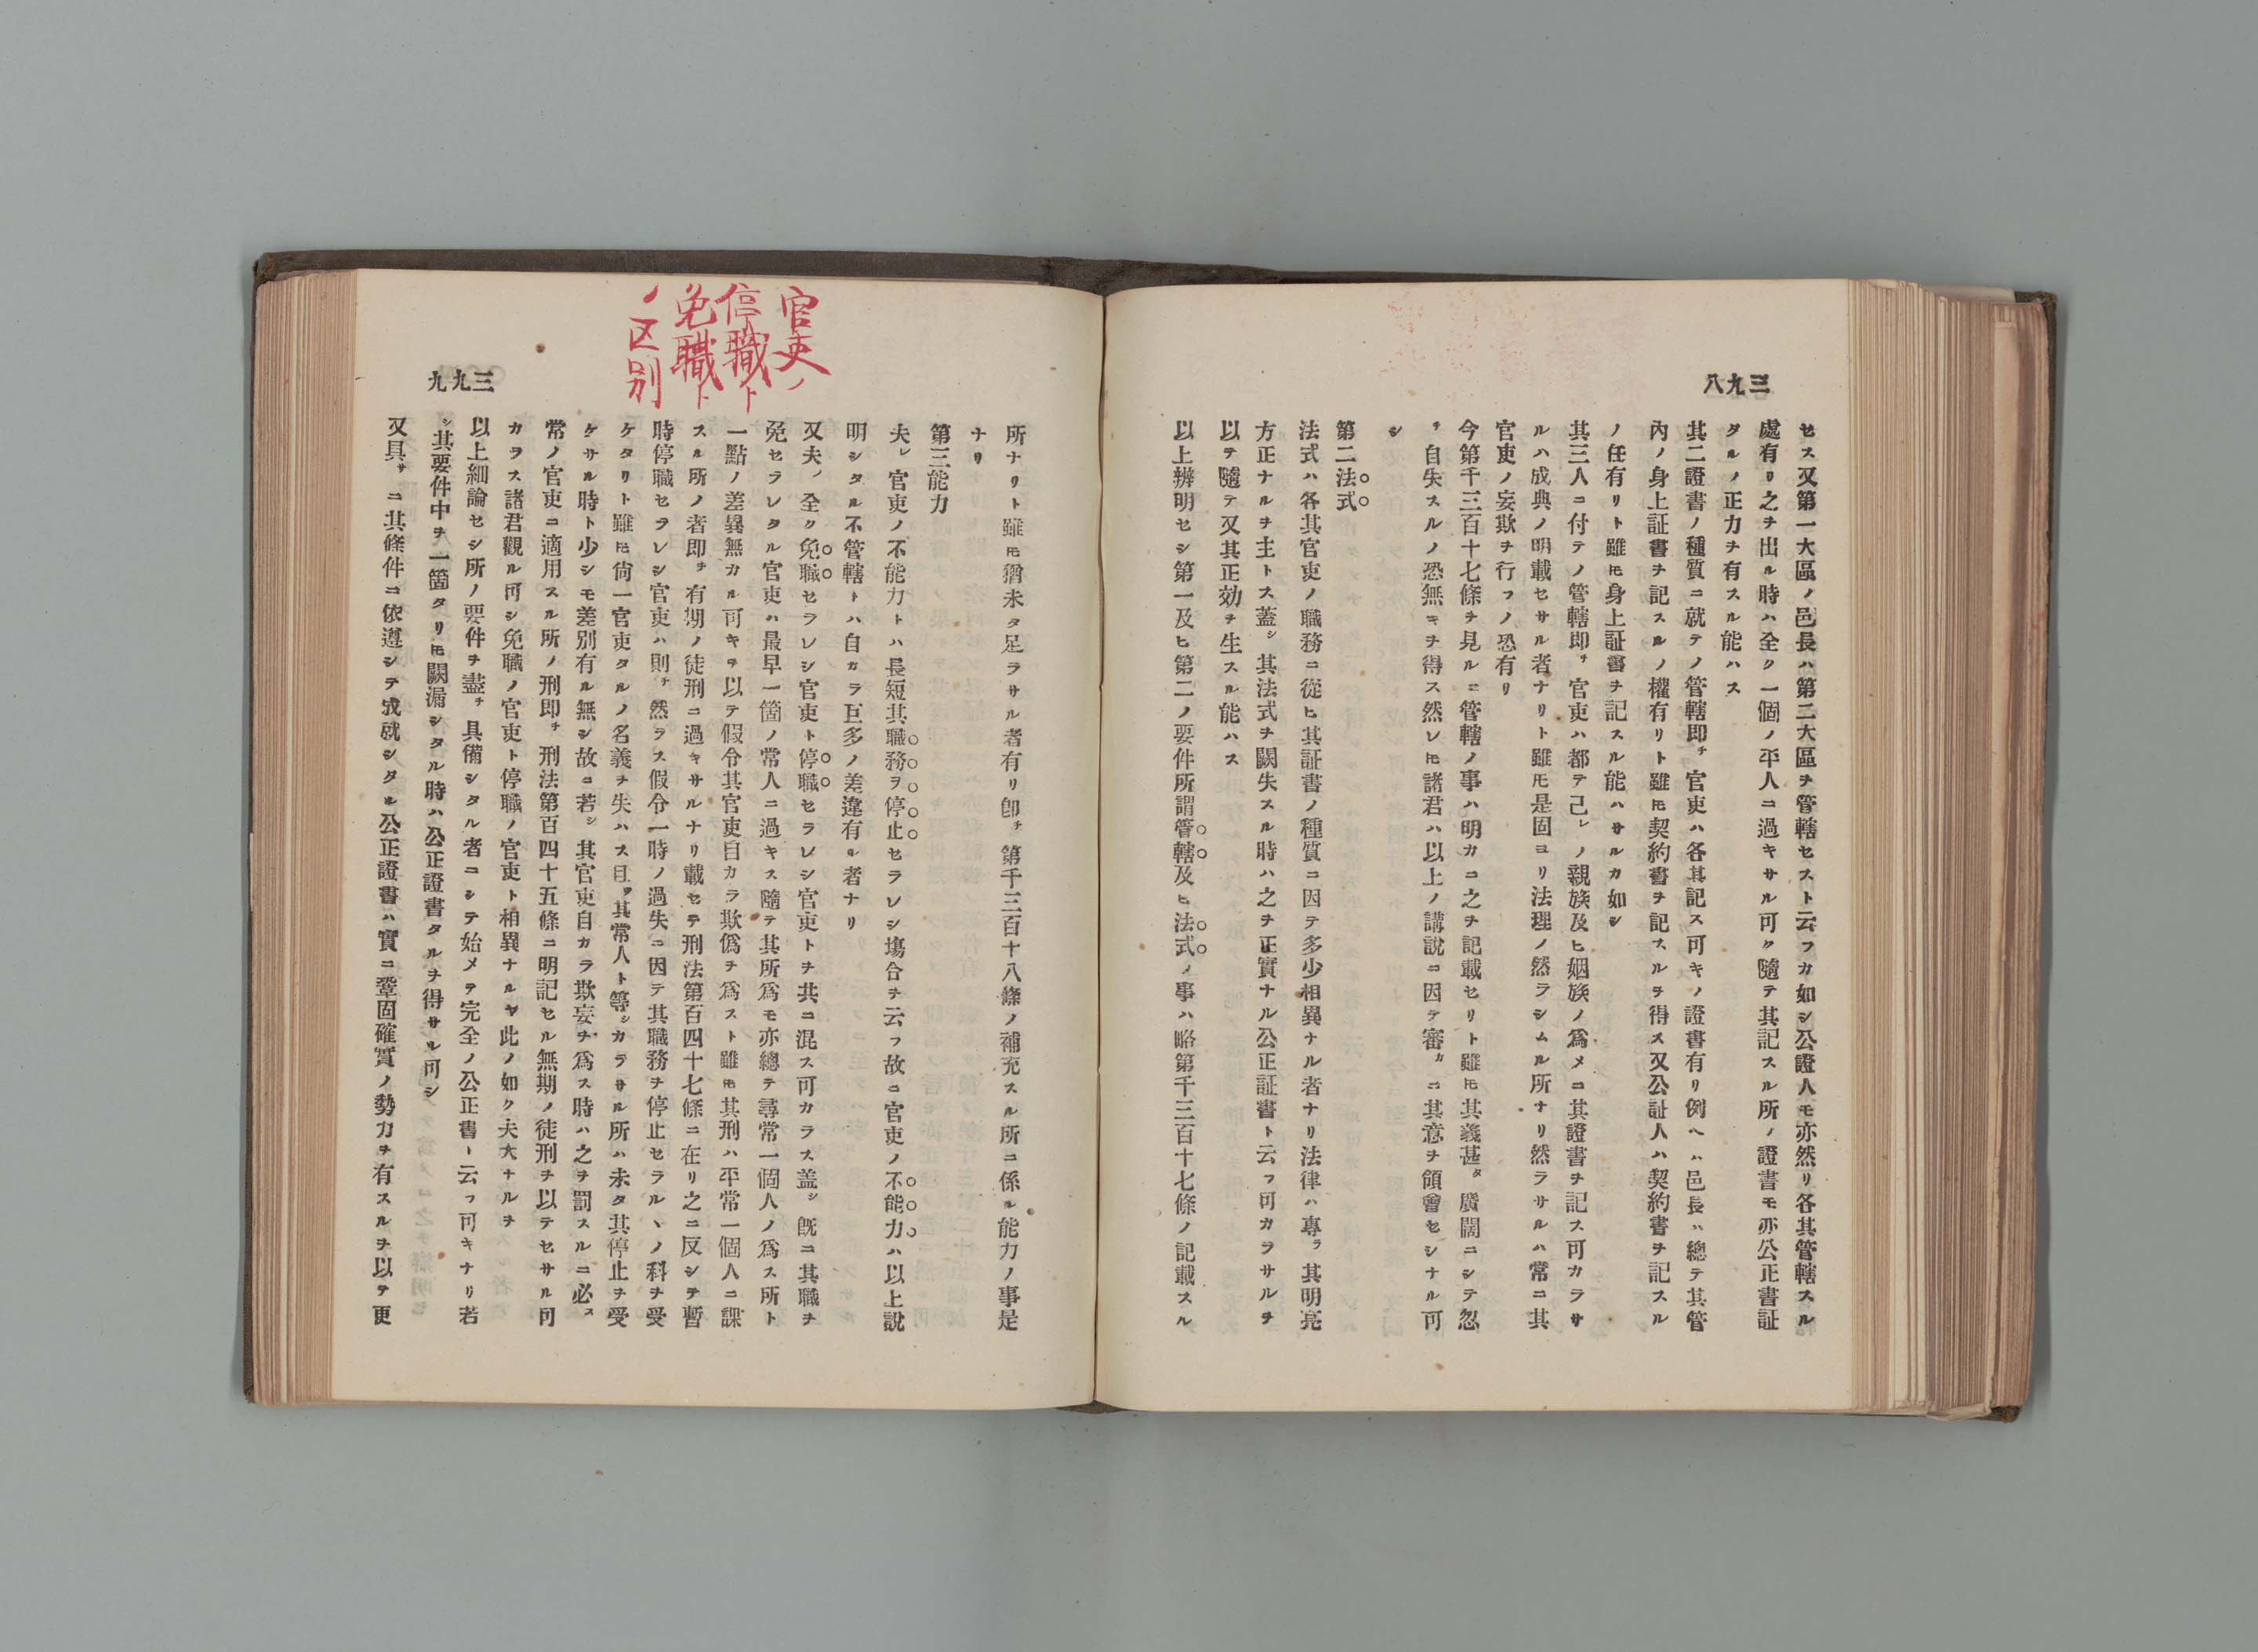 三九八
セス又第一大區ノ邑長ハ第二大區ヲ管轄セスト云フカ如シ公證人モ亦然リ各其管轄スル
處有リ之ヲ出ル時ハ全ク一個ノ平人ニ過キサル可ク隨テ其記スル所ノ證書モ亦公正書証
タルノ正力ヲ有スル能ハス
其二證書ノ種質ニ就テノ管轄即チ官吏ハ各其記ス可キノ證書有リ例ヘハ邑長ハ總テ其管
內ノ身上証書ヲ記スルノ權有リト雖𪜈契約書ヲ記スルヲ得ス又公証人ハ契約書ヲ記スル
ノ任有リト雖𪜈身上証書ヲ記スル能ハサルカ如シ
其三人ニ付テノ管轄即チ官吏ハ都テ己レノ親族及ヒ姻族ノ爲メニ其證書ヲ記ス可カラサ
ルハ成典ノ明載セサル者ナリト雖𪜈是固ヨリ法理ノ然ラシムル所ナリ然ラサルハ常ニ其
官吏ノ妄欺ヲ行フノ恐有リ
今第千三百十七條ヲ見ルニ管轄ノ事ハ明カニ之ヲ記載セリト雖𪜈其義甚タ廣闊ニシテ忽
チ自失スルノ恐無キヲ得ス然レ𪜈諸君ハ以上ノ講說ニ因テ審カニ其意ヲ領會セシナル可
シ
第二法式
法式ハ各其官吏ノ職務ニ從ヒ其証書ノ種質ニ因テ多少相異ナル者ナリ法律ハ專ラ其明亮
方正ナルヲ主トス蓋シ其法式ヲ闕失スル時ハ之ヲ正實ナル公正証書ト云フ可カラサルヲ
以テ隨テ又其正効ヲ生スル能ハス
以上辨明セシ第一及ヒ第二ノ要件所謂管轄及ヒ法式ノ事ハ略第千三百十七條ノ記載スル
官吏ノ
停職ト
免職ト
ノ区別
三九九
所ナリト雖𪜈猶未タ足ラサル者有リ卽チ第千三百十八條ノ補充スル所ニ係ル能力ノ事是
ナリ
第三能力
夫レ官吏ノ不能力トハ長短其職務ヲ停止セラレシ塲合ヲ云フ故ニ官吏ノ不能力ハ以上說
明シタル不管轄トハ自カラ巨多ノ差違有ル者ナリ
又夫ノ全ク免職セラレシ官吏ト停職セラレシ官吏トヲ共ニ混ス可カラス蓋シ旣ニ其職ヲ
免セラレタル官吏ハ最早一箇ノ常人ニ過キス隨テ其所爲モ亦總テ尋常一個人ノ爲ス所ト
一點ノ差異無カル可キヲ以テ假令其官吏自カラ欺僞ヲ爲スト雖𪜈其刑ハ平常一個人ニ課
スル所ノ者即チ有期ノ徒刑ニ過キサルナリ載セテ刑法第百四十七條ニ在リ之ニ反シテ暫
時停職セラレシ官吏ハ則チ然ラス假令一時ノ過失ニ因テ其職務ヲ停止セラルヽノ科ヲ受
ケタリト雖𪜈尙一官吏タルノ名義ヲ失ハス且ツ其常人ト等シカラサル所ハ未タ其停止ヲ受
ケサル時ト少シモ差別有ル無シ故ニ若シ其官吏自カラ欺妄ヲ爲ス時ハ之ヲ罰スルニ必ス
常ノ官吏ニ適用スル所ノ刑即チ刑法第百四十五條ニ明記セル無期ノ徒刑ヲ以テセサル可
カラス諸君觀ル可シ免職ノ官吏ト停職ノ官吏ト相異ナルヤ此ノ如ク夫大ナルヲ
以上細論セシ所ノ要件ヲ盡ク具備シタル者ニシテ始メテ完全ノ公正書ト云フ可キナリ若
シ其要件中ヲ一箇タリ𪜈闕漏シタル時ハ公正證書タルヲ得サル可シ
又具サニ其條件ニ依遵シテ成就シタル公正證書ハ實ニ鞏固確實ノ勢力ヲ有スルヲ以テ更